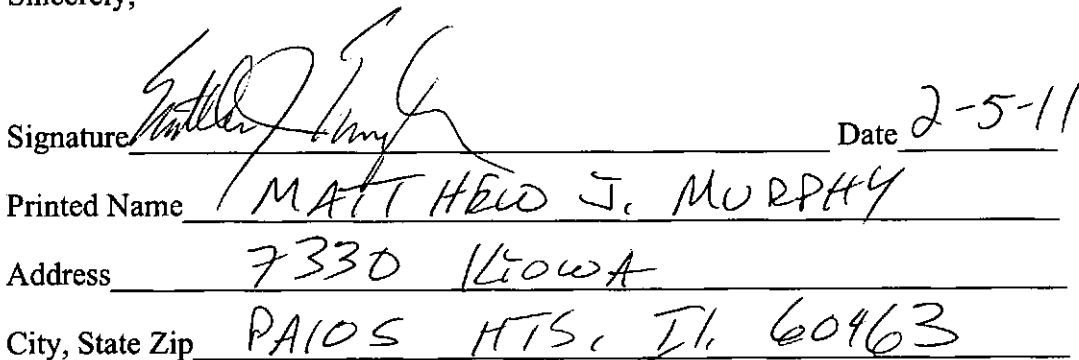 Sincerely,
Signature Date 2-5-11
Printed Name MATTHEW J. MURPHY
Address 7330 KIOWA
City, State Zip PALOS HTS, Il. 60463